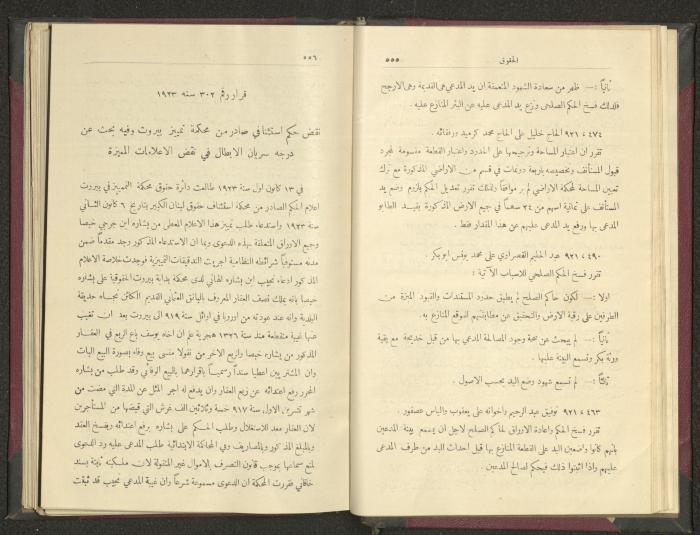 الحقوق ٥٥٥
ثانياً : — ظهر من سعادة الشهود المتصفة ان يد المدعي هي القديمة وهي الارجح
فلذلك فسخ الحكم الصلحي ونزع يد المدعى عليه عن البئر المنازع عليه .
٤٧٤ ، ٩٢١ الحاج خليل على الحاج محمد كرميد ورفقائه .
تقرر ان اعتبار المساحة وترجيحها على الحدود واعتبار القطعة مقسومة لمجرد
قبول المستأنف وتخصيصه باربعة دونمات في قسم من الاراضي المذكورة مع ترك
تعيين المساحة لمحكمة الاراضي لم ير موافقاً ولذلك تقرر تعديل الحكم بلزوم وضع يد
المستأنف على ثمانية اسهم من ٢٤ سهماً في جميع الارض المذكورة بقيد الطابو
المدعى بها ورفع يد المدعى عليهم عن هذا المقدار فقط .
٤٩٠ ، ٩٢١ عبد الحليم القصراوي على محمد يونس ابو بكر .
تقرر فسخ الحكم الصلحي للاسباب الآتية :
اولا : — لكون حاكم الصلح لم يطبق حدود المستندات والقيود المبرزة من
الطرفين على رقبة الارض والتحقيق عن مطابقتهم لموقع المنازع به .
ثانياً : — لم يبحث عن صحة وجود المصالحة المدعى بها من قبل خديجة مع بقية
ورثة بكر وتسمع البينة عليها .
ثالثاً : — لم تسمع شهود وضع اليد بحسب الاصول .
٤٦٣ ، ٩٢١ توفيق عبد الرحيم واخوانه على يعقوب والياس عصفور .
تقرر فسخ الحكم واعادة الاوراق لحاكم الصلح لاجل ان يسمع بينة المدعين
بانهم كانوا واضعين اليد على القطعة المنازع بها قبل احداث اليد من طرف المدعى
عليهم واذا اثبتوا ذلك فيحكم لصالح المدعين .
٥٥٦
قرار رقم ٣٠٢ سنه ١٩٢٣
نقض حكم استئنافي صادر من محكمة تمييز بيروت وفيه بحث عن
درجه سريان الابطال في نقض الاعلامات المميزة
في ١٣ كانون اول سنة ١٩٢٣ طالعت دائرة حقوق محكمة التمييز في بيروت
اعلام الحكم الصادر من محكمة استئناف حقوق لبنان الكبير بتاريخ ٦ كانون الثاني
سنة ١٩٢٣ واستدعاء طلب تمييز هذا الاعلام المعطى من بشاره ابن جرجي خيصا
وجميع الاوراق المتعلقة بهذه الدعوى وبما ان الاستدعاء المذكور وجد مقدماً ضمن
مدته مستوفياً شرائطه النظامية اجريت التدقيقات التمييزية فوجدت خلاصة الاعلام
المذكور ادعاء نجيب ابن بشاره الهاني لدى محكمة بداية بيروت الحقوقية على بشاره
خيصا بانه يملك نصف العقار المعروف باليانق العثماني القديم الكائن تجاه حديقة
البلدية وانه عند عودته من اوروبا في اوائل سنة ٩١٩ الى بيروت بعد ان تغيب
عنها غيبة منقطعة منذ سنة ١٣٢٦ هجرية علم ان اخاه يوسف باع الربع في العقار
المذكور من بشاره خيصا والربع الآخر من نقولا منسى بيع وفاء بصورة البيع البات
وان المشتريين اعطيا سنداً رسمياً باقرارهما بالبيع الوفائي وقد طلب من بشاره
المحرر رفع اعتدائه عن ربع العقار وان يدفع له اجر المثل عن المدة التي مضت من
شهر تشرين الاول سنة ٩١٧ خمسة وثلاثين الف غرش التي قبضها من المستأجرين
لان العقار معد للاستغلال وطلب الحكم على بشاره برفع اعتدائه وبفسخ العقد
وبالمبلغ المذكور وبالمصاريف وفي المحاكمة الابتدائية طلب المدعى عليه رد الدعوى
لمنع سماعها بموجب قانون التصرف بالاموال غير المنقولة لان ملكيته ثابتة بسند
خاقاني فقررت المحكمة ان الدعوى مسموعة شرعاً وان غيبة المدعي نجيب قد ثبتت